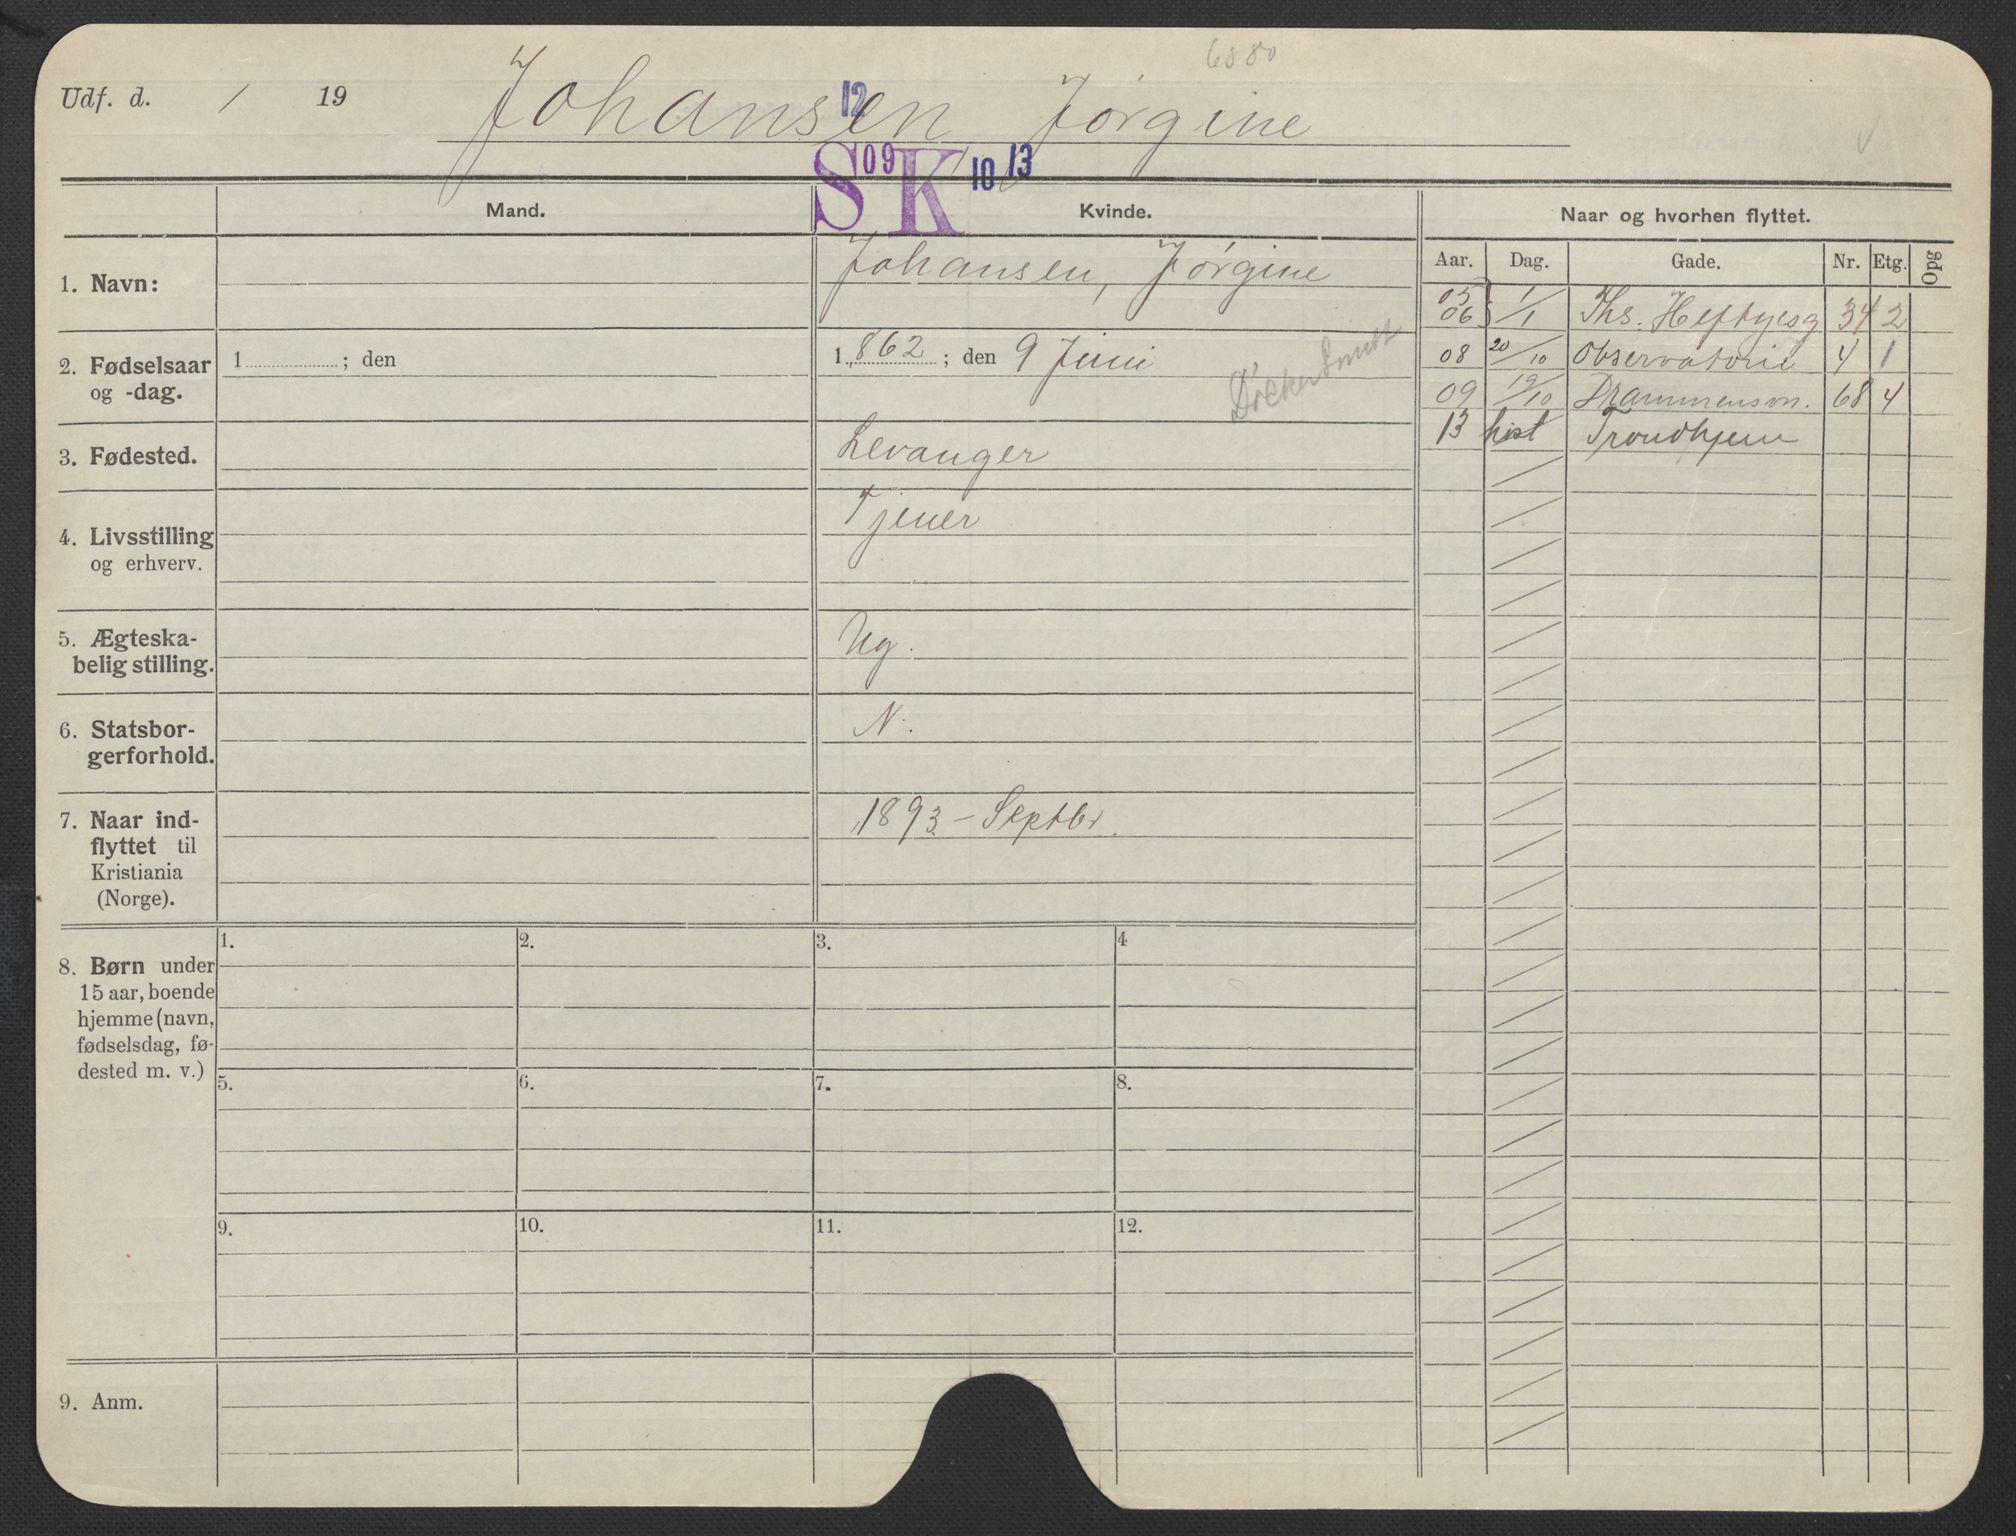 6880
Udf. d. / 19 Johansen Jørgine
12
S 09 K 10 13
Mand. Kvinde. Naar og hvorhen flyttet.
Aar. Dag. Gade. Nr. Etg. Opg
1. Navn: Johansen, Jørgine
05 06 1/1 Ths. Heftyesg 34 2
2. Fødselsaar 1 ; den 1 862 ; den 9 Juni
og -dag.
08 20/10 Observatorie 4 1
09 19/10 Drammensvn. 68 4
13 høst Trondhjem
3. Fødested. Levanger
4. Livsstilling Tjener
og erhverv.
5. Ægteska- Ug.
belig stilling.
6. Statsbor- N.
gerforhold.
7. Naar ind- 1893 – Septbr.
flyttet til
Kristiania
(Norge).
8. Børn under
15 aar, boende
hjemme (navn,
fødselsdag, fø-
dested m. v.)
1. 2. 3. 4
5. 6. 7. 8.
9. 10. 11. 12.
9. Anm.